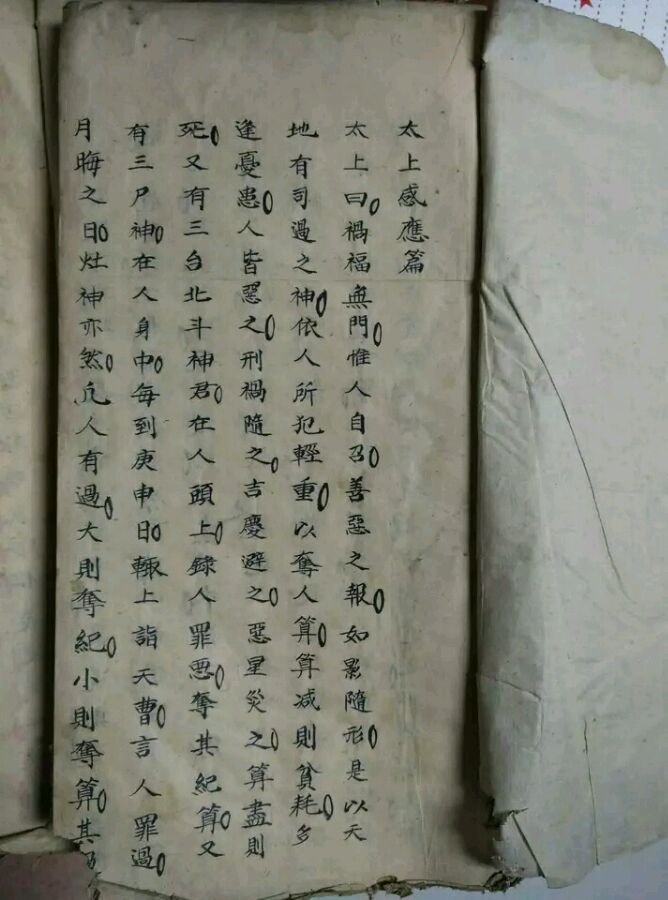 太上感應篇
太上曰。禍福無門。惟人自召。善惡之報。如影隨形。是以天
地有司過之神。依人所犯輕重。以奪人算。算減則貧耗。多
逢憂患。人皆惡之。刑禍隨之。吉慶避之。惡星災之。算盡則
死。又有三台北斗神君。在人頭上。錄人罪惡。奪其紀算。又
有三尸神。在人身中。每到庚申日。輙上詣天曹。言人罪過。
月晦之日。灶神亦然。凢人有過。大則奪紀。小則奪算。其